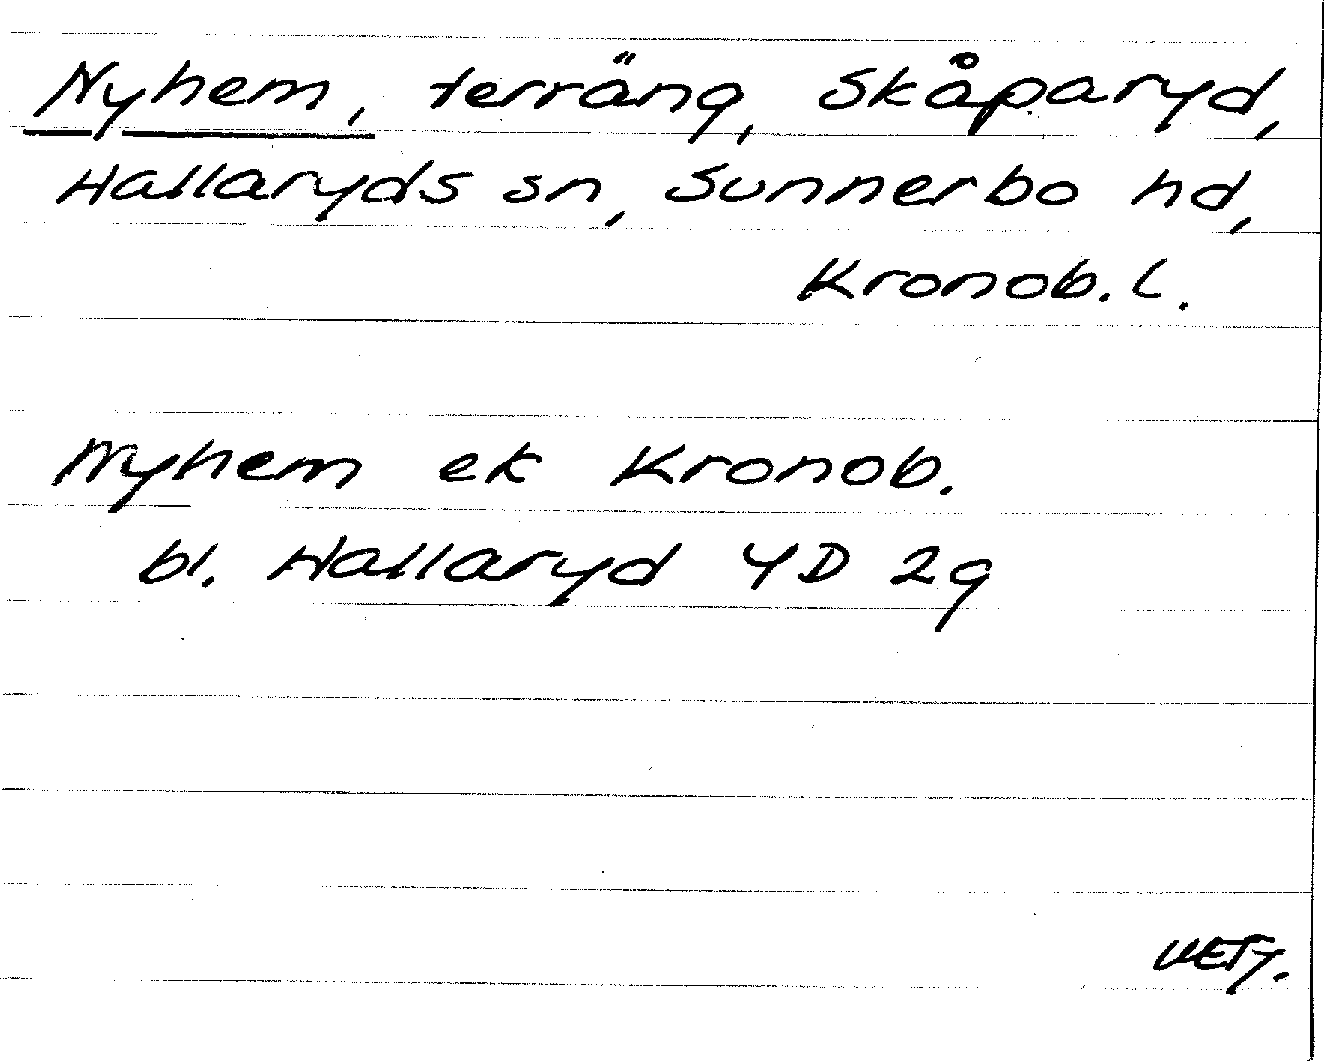 Nyhem, terräng, Skåparyd,
Hallaryds sn, Sunnerbo hd,
Kronob. l.
Nyhem ek Kronob.
bl. Hallaryd 4D 2g